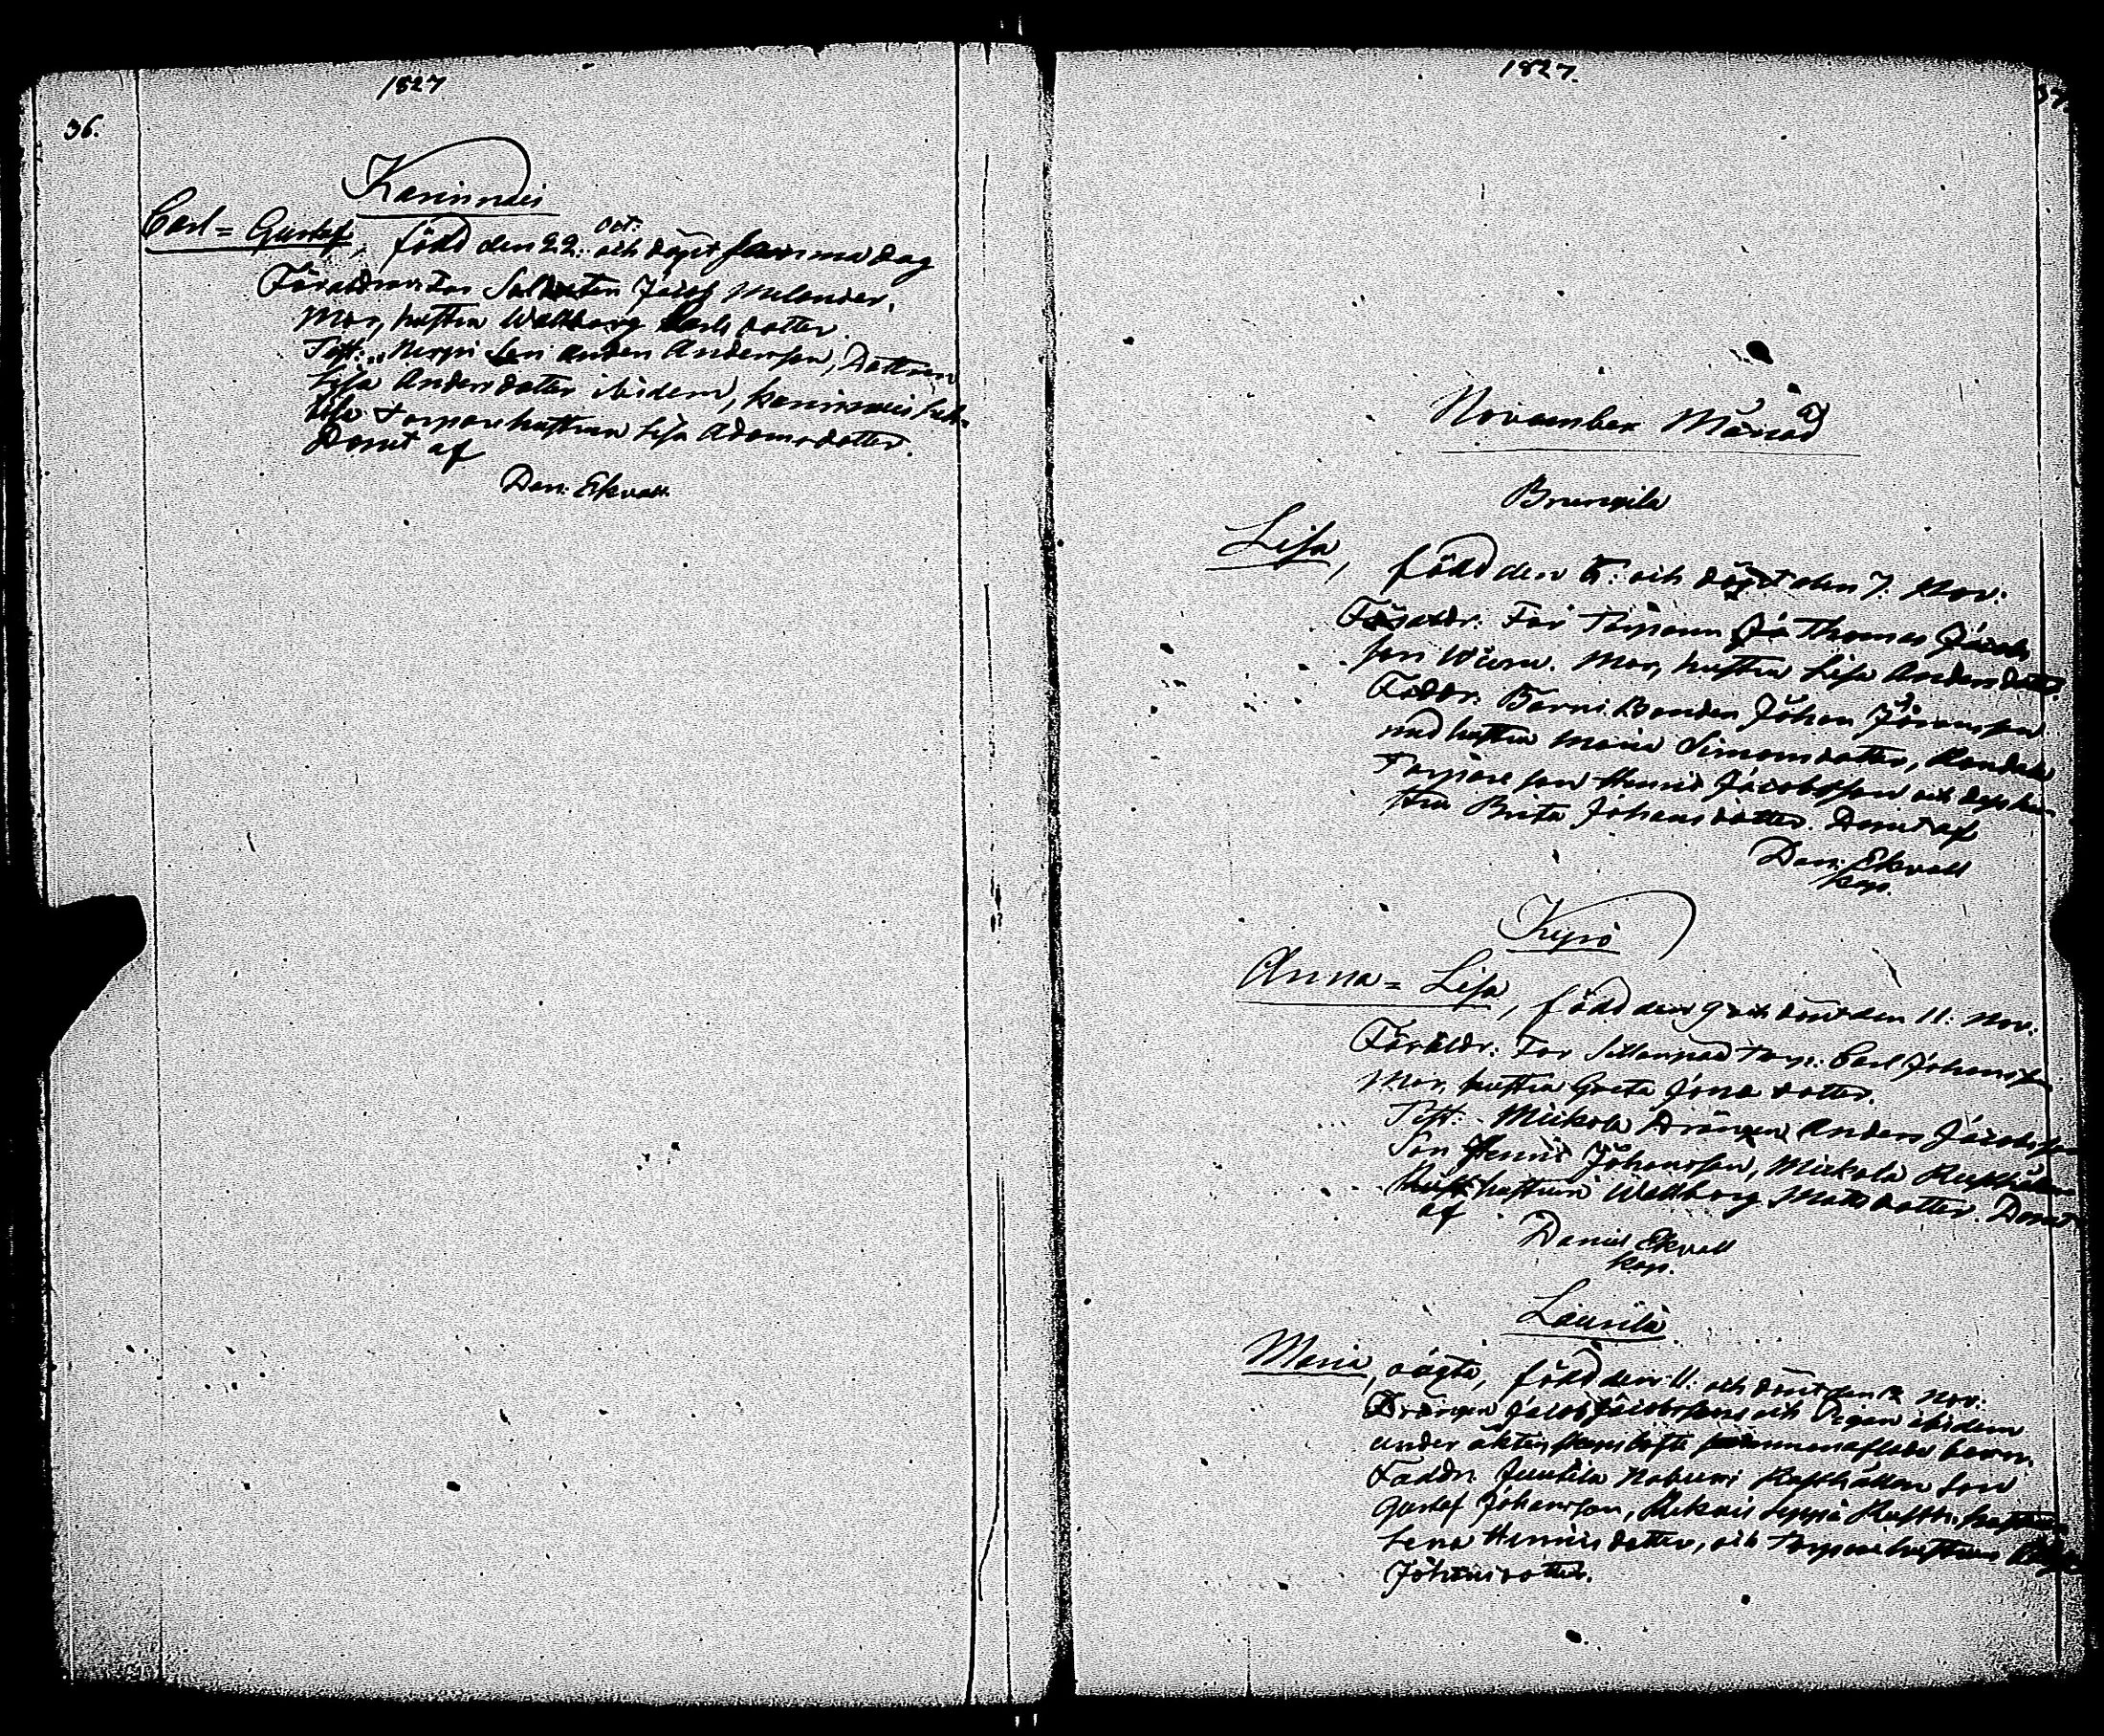 1827
36.
Kanimäi
Carl = Gustaf, född den 22: Oct: och döpt samma dag
Föräldrar: Far Soldaten Jacob Melander,
Mor, hustru Wallborg Carlsdotter.
Test: Anders Andersson, Dottren
Lisa Andersdotter ibidem,
Torpare hustrun Lisa Adamsdotter.
Döpt af
Dan: Ekvall
1827.
37
November Månad
Brunnila
Lisa, född den 5: och döpt den 7. Nov:
Föräldr: Far Torparen Thomas Jacobs
son. Mor, hustru Lisa Andersdotter.
Faddr: Bonden Johan Jöransson
med hustru Maria Simonsdotter,
Torpare son Henric Jacobsson och dess hu-
stru Brita Johansdotter. Döpt af
Dan: Ekvall
kap.
Kyrö
Anna = Lisa, född den 9 och döpt den 11: Nov:
Föräldr: Far Sillanpää torp: Carl Johansson
Mor, hustru Greta Jonsdotter.
Test: Mickola Drängen Anders Jacobsson
Son Henric Johansson, Mickola Rusthållare
hustrun Wallborg Mattsdotter. Döpt
af
Daniel Ekvall
kap.
Laurila
Maria, oägta, född den 11: och döpt den 12 Nov:
Drängen Jacob Jacobssons och Pigan ibidem
under äktenskaps löfte sammanaflade barn.
Faddr: Juutila Rusthållare Son
Gustaf Johansson, Seppä Rusth: hustrun
Lena Henricsdotter, och Torpare hustrun
Johansdotter.